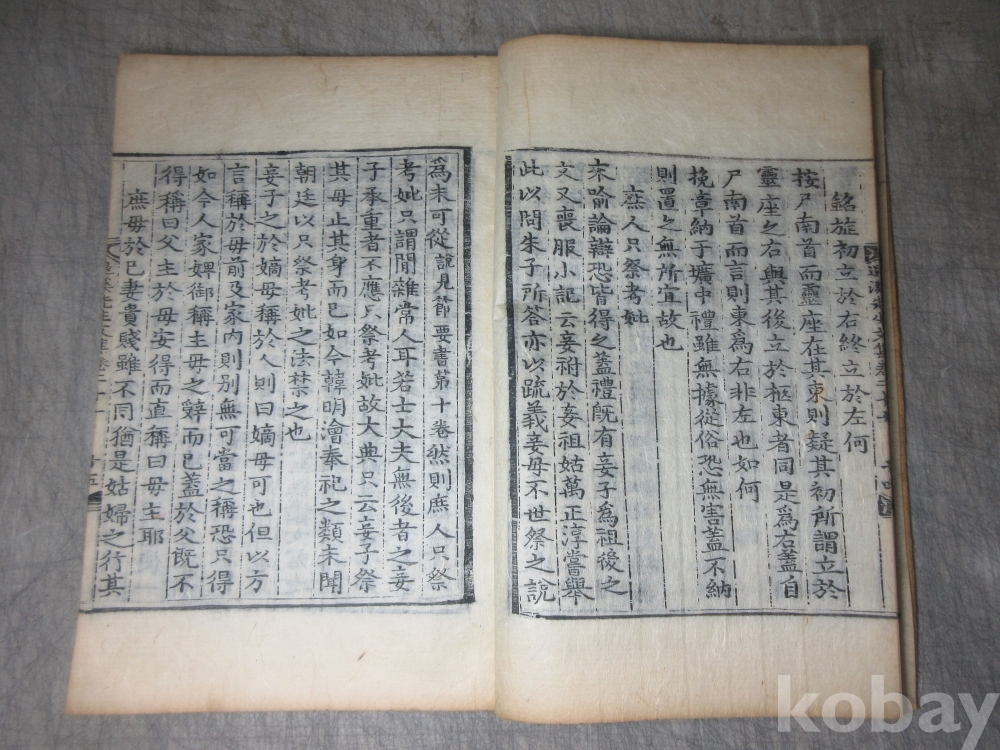 銘旌初立於右終立於左何
按尸南首而靈座在其東則疑其初所謂立於
靈座之右與其後立於柩東者同是爲右蓋自
尸南首而言則東爲右非左也如何
挽章納于壙中禮雖無據從俗恐無害蓋不納
則置之無所宜故也
庶人只祭考妣
來喩論辯恐皆得之蓋禮旣有妾子爲祖後之
文又喪服小記云妾祔於妾祖姑萬正淳嘗舉
此以問朱子所答亦以疏義妾母不世祭之說
爲未可從說見節要書第十卷然則庶人只祭
考妣只謂閒雜常人耳若士大夫無後者之妾
子承重者不應只祭考妣故大典只云妾子祭
其母止其身而已如今韓明澮奉祀之類未聞
朝廷以只祭考妣之法禁之也
妾子之於嫡母稱於人則曰嫡母可也但以方
言稱於母前及家內則別無可當之稱恐只得
如今人家婢御稱主母之辭而已蓋於父旣不
得稱曰父主於母安得而直稱曰母主耶
庶母於己妻貴賤雖不同猶是姑婦之行其
kobay